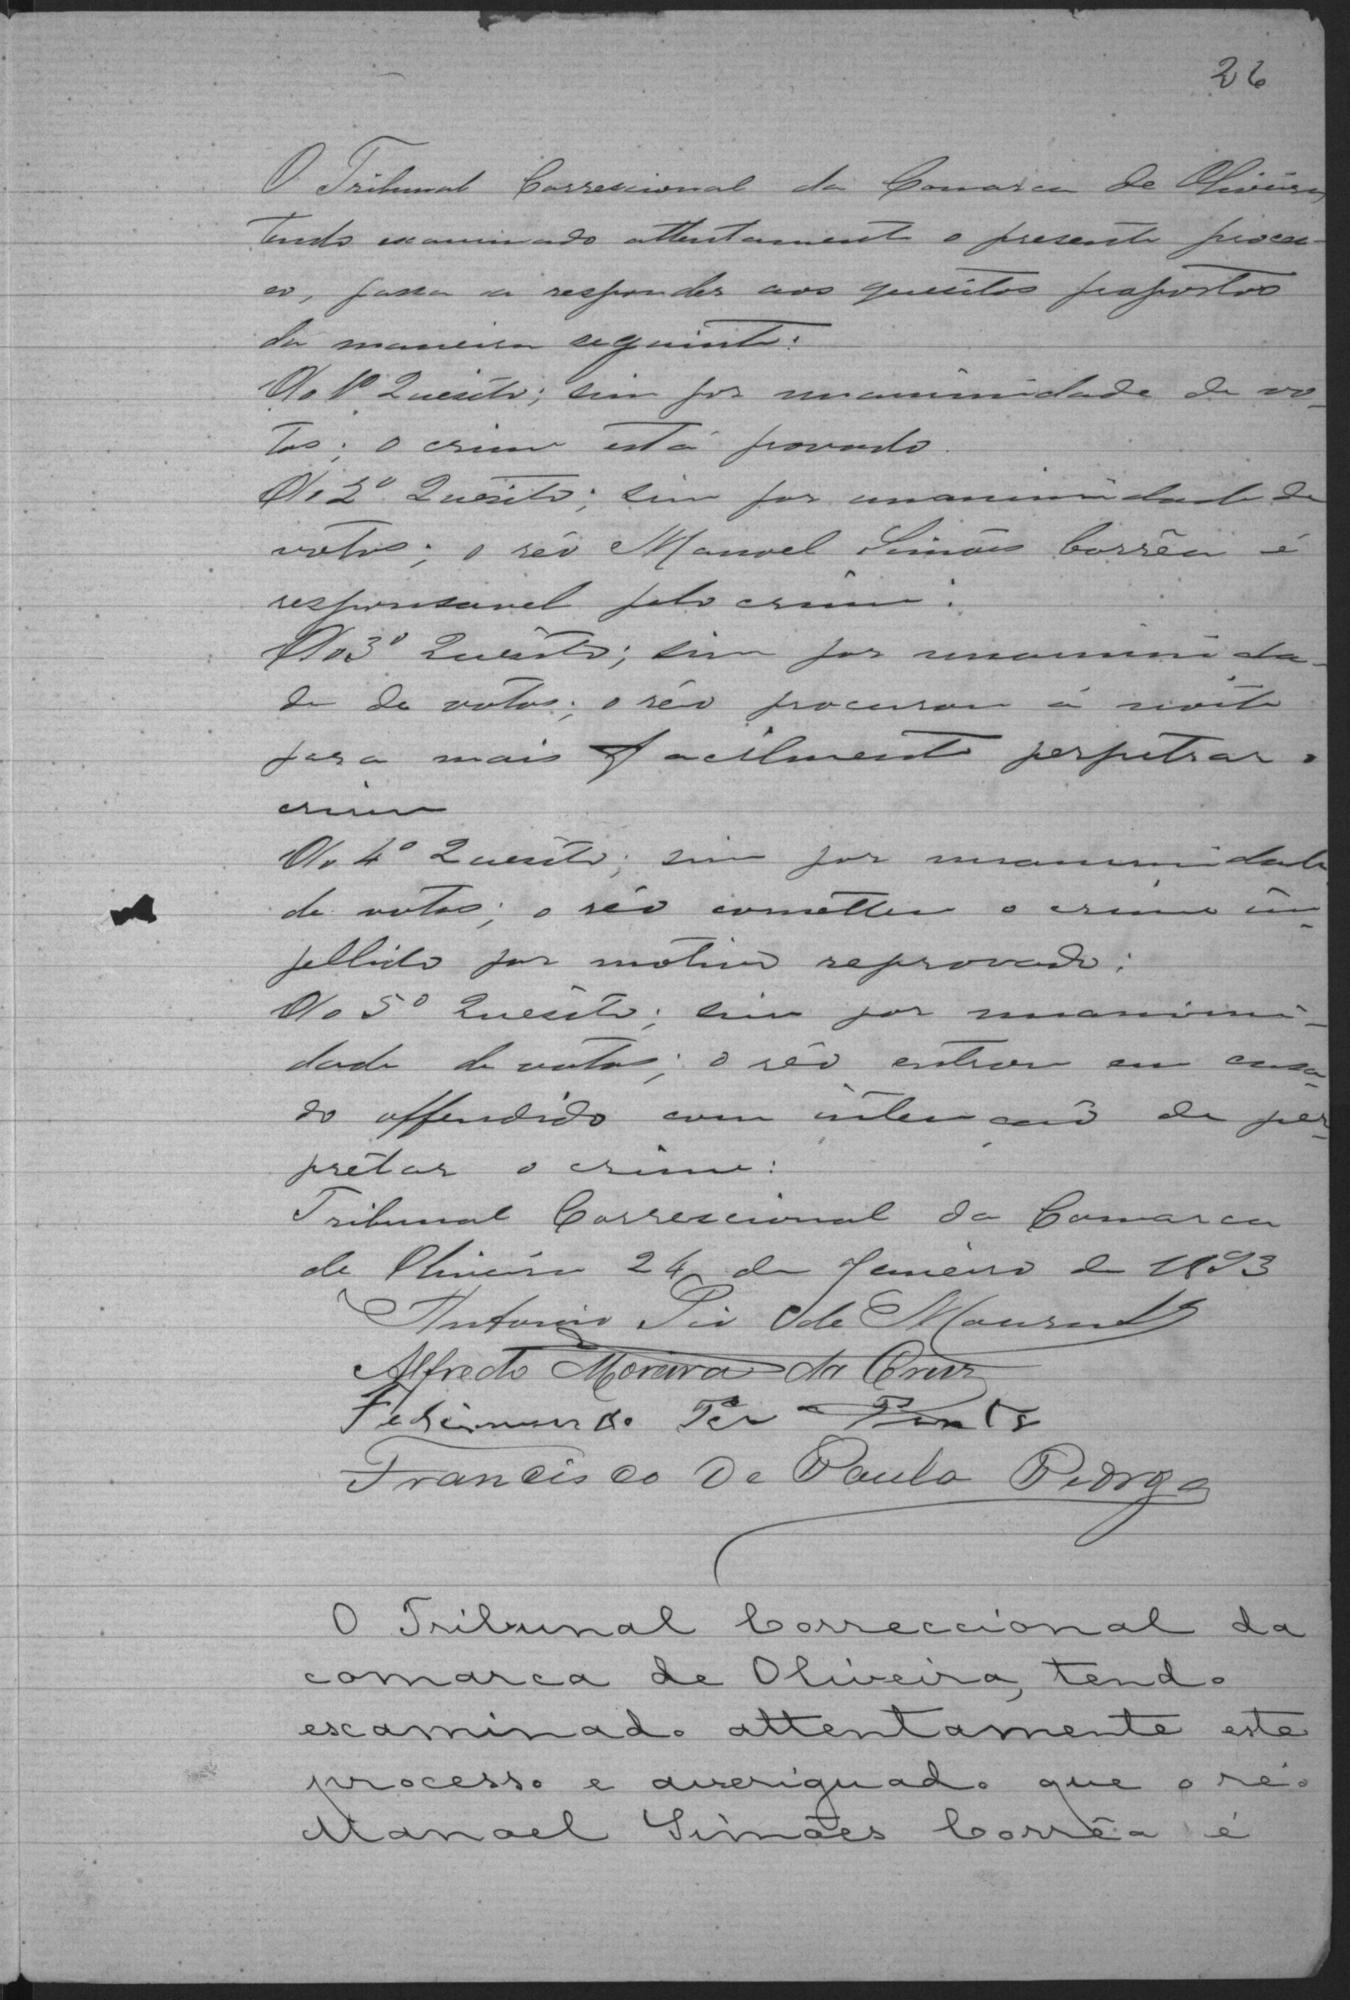 26
O Tribunal Correccional da Comarca de Oliveira,
tendo examinado attentamente o presente proces-
so, passa a responder aos quesitos propostos
da maneira seguinte:
Ao 1º Quesito; sim por unanimidade de vo-
tos; o crime está provado.
Ao 2º Quesito; sim por unanimidade de
votos; o réo Manoel Simões Corrêa é
responsavel pelo crime:
Ao 3º Quesito; sim por unanimida-
de de votos; o réo procurou a noite
para mais facilmente perpetrar o
crime
Ao 4º Quesito; sim por unanimidade
de votos; o réo cometteu o crime im-
pellido por motivo reprovado:
Ao 5º Quesito; sim por unanimi-
dade de votos; o réo entrou em casa
do offendido com intenção de per-
pretar o crime:
Tribunal Correccional da Comarca
de Oliveira 24 de Janeiro de 1893
Antonio Pio de Moura
Alfredo Moreira da Cruz
Francisco de Paula
O Tribunal Correccional da
comarca de Oliveira, tendo
escaminado attentamente este
processo e averiguado que o réo
Manoel Simões Corrêa é